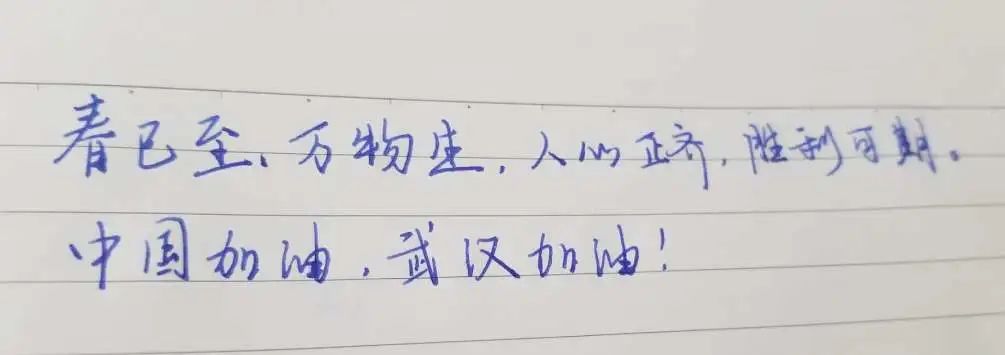 春已至、万物生，人心正齐，胜利可期。
中国加油，武汉加油！